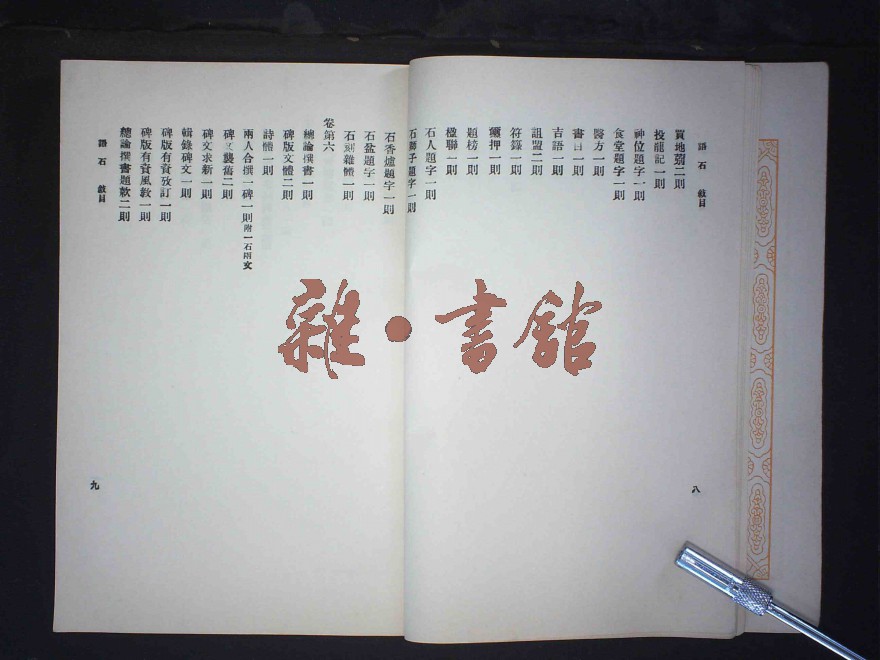 語石 敍目
買地莂二則
投龍記一則
神位題字一則
食堂題字一則
醫方一則
書目一則
吉語一則
詛盟二則
符籙一則
璽押一則
題榜一則
楹聯一則
石人題字一則
石獅子題字一則
八
石香爐題字一則
石盆題字一則
石刻雜體一則
卷第六
總論撰書一則
碑版文體二則
詩體一則
兩人合撰一碑一則附一石兩文
碑文襲舊二則
碑文求新一則
輯錄碑文一則
碑版有資攷訂一則
碑版有資風敎一則
總論撰書題款二則
語石 敍目
九
雜·書館